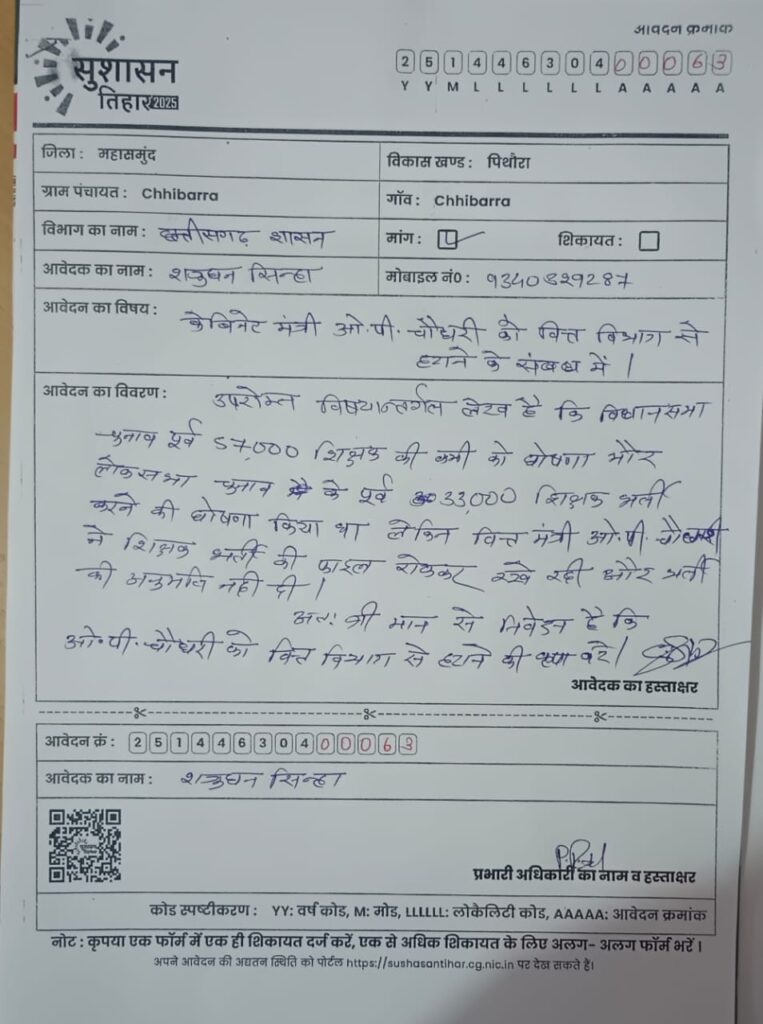 आवेदन क्रमांक
सुशासन
तिहार 2025
2 5 1 4 4 6 3 0 4 0 0 0 6 3
Y Y M L L L L L L A A A A A
जिला : महासमुंद
विकास खण्ड : पिथौरा
ग्राम पंचायत : Chhibarra
गाँव : Chhibarra
विभाग का नाम : छत्तीसगढ़ शासन
मांग :
शिकायत :
आवेदक का नाम : शत्रुघन सिन्हा
मोबाइल नं0 : 9340829287
आवेदन का विषय : केबिनेट मंत्री ओ.पी. चौधरी को वित्त विभाग से
हटाने के संबंध में |
आवेदन का विवरण : उपरोक्त विषयान्तर्गत लेख है कि विधानसभा
चुनाव पूर्व 57,000 शिक्षक की कमी को घोषणा और
लोकसभा चुनाव के पूर्व 33,000 शिक्षक भर्ती
करने की घोषणा किया था लेकिन वित्त मंत्री ओ.पी. चौधरी
ने शिक्षक भर्ती की फाइल रोककर रखे रही और भर्ती
की अनुमति नही दी |
अतः श्री मान से निवेदन है कि
ओ.पी. चौधरी को वित्त विभाग से हटाने की कृपा करे |
आवेदक का हस्ताक्षर
आवेदन क्रं : 2 5 1 4 4 6 3 0 4 0 0 0 6 3
आवेदक का नाम : शत्रुघन सिन्हा
सुशासन
प्रभारी अधिकारी का नाम व हस्ताक्षर
कोड स्पष्टीकरण : YY: वर्ष कोड, M: मोड, LLLLLL: लोकैलिटी कोड, AAAAA: आवेदन क्रमांक
नोट : कृपया एक फॉर्म में एक ही शिकायत दर्ज करें, एक से अधिक शिकायत के लिए अलग- अलग फॉर्म भरें ।
अपने आवेदन की अद्यतन स्थिति को पोर्टल https://sushasantihar.cg.nic.in पर देख सकते हैं।